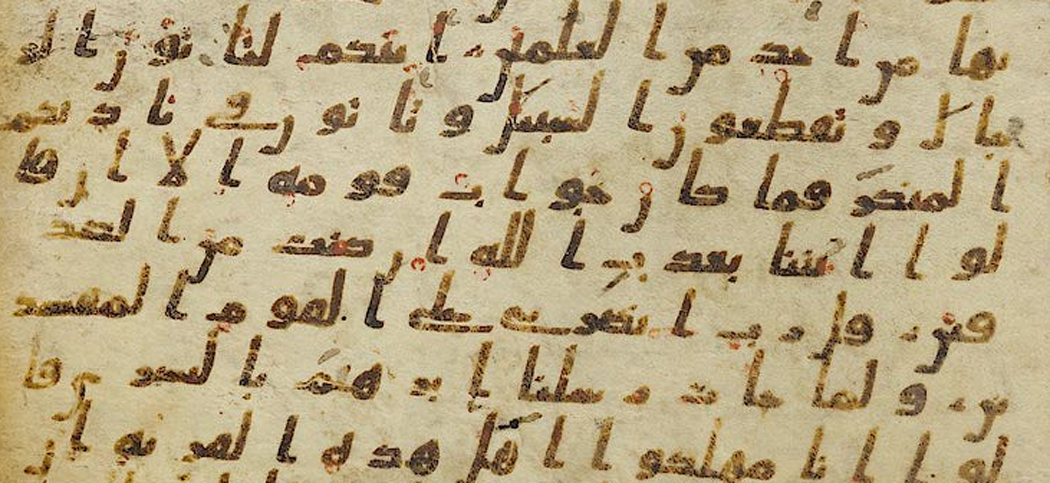 بها من احد من العلمين اينكم لتاتون الر
جال وتقطعون السبيل وتاتون في ناديكم
المنكر فما كان جواب قومه الا ان قا
لوا ائتنا بعذب الله ان كنت من الصد
قين قل رب انصرني على القوم المفسد
ين ولما جات رسلنا ابرهيم بالبشرى قا
لوا انا مهلكوا اهل هذه القرية ان